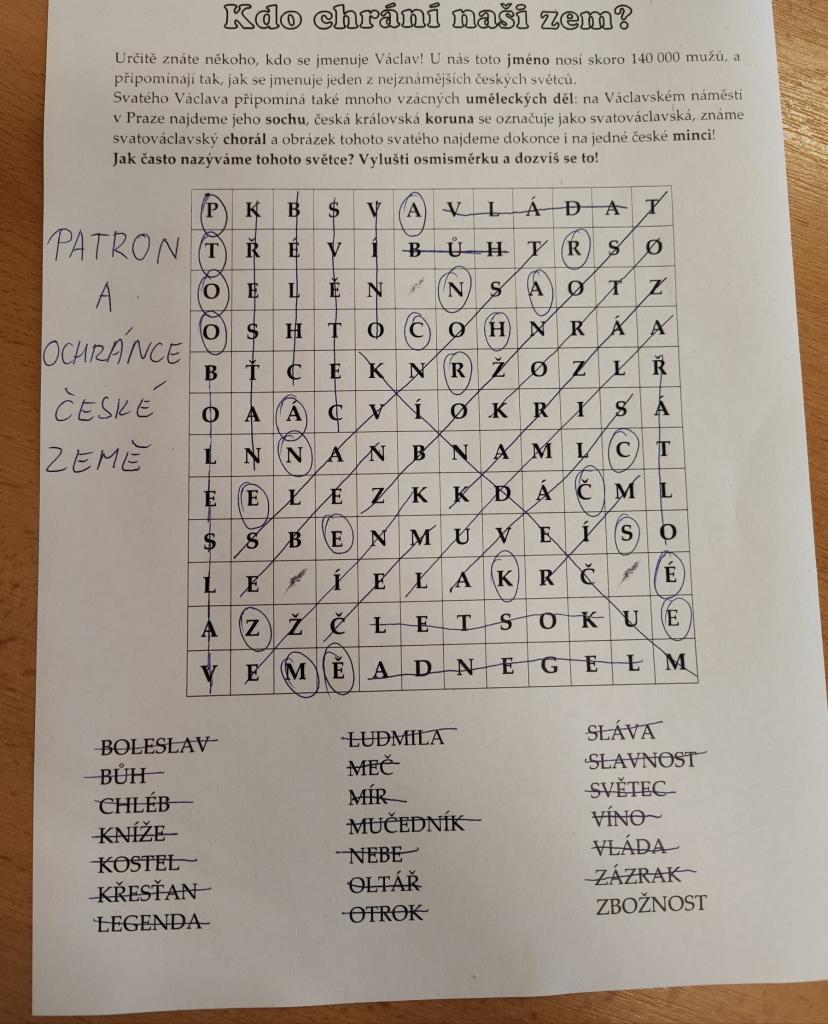 Kdo chrání naši zem?
Určitě znáte někoho, kdo se jmenuje Václav! U nás toto jméno nosí skoro 140 000 mužů, a
připomínají tak, jak se jmenuje jeden z nejznámějších českých světců.
Svatého Václava připomíná také mnoho vzácných uměleckých děl: na Václavském náměstí
v Praze najdeme jeho sochu, česká královská koruna se označuje jako svatováclavská, známe
svatováclavský chorál a obrázek tohoto svatého najdeme dokonce i na jedné české minci!
Jak často nazýváme tohoto světce? Vylušti osmisměrku a dozvíš se to!
PATRON
A
OCHRÁNCE
ČESKÉ
ZEMĚ
P K B S V A V L Á D A T
T Ř É V Í B Ů H T R S O
O E L Ě N N S A O T Z
O S H T O C O H N R Á A
B Ť C E K N R Ž O Z L Ř
O A Á C V Í O K R I S Á
L N N A N B N A M L C T
E E L É Z K K D Á Č M L
S S B E N M U V E Í S O
L E Í E L A K R Č É
A Z Ž Č L E T S O K U E
V E M Ě A D N E G E L M
BOLESLAV LUDMILA SLÁVA
BŮH MEČ SLAVNOST
CHLÉB MÍR SVĚTEC
KNÍŽE MUČEDNÍK VÍNO
KOSTEL NEBE VLÁDA
KŘESŤAN OLTÁŘ ZÁZRAK
LEGENDA OTROK ZBOŽNOST